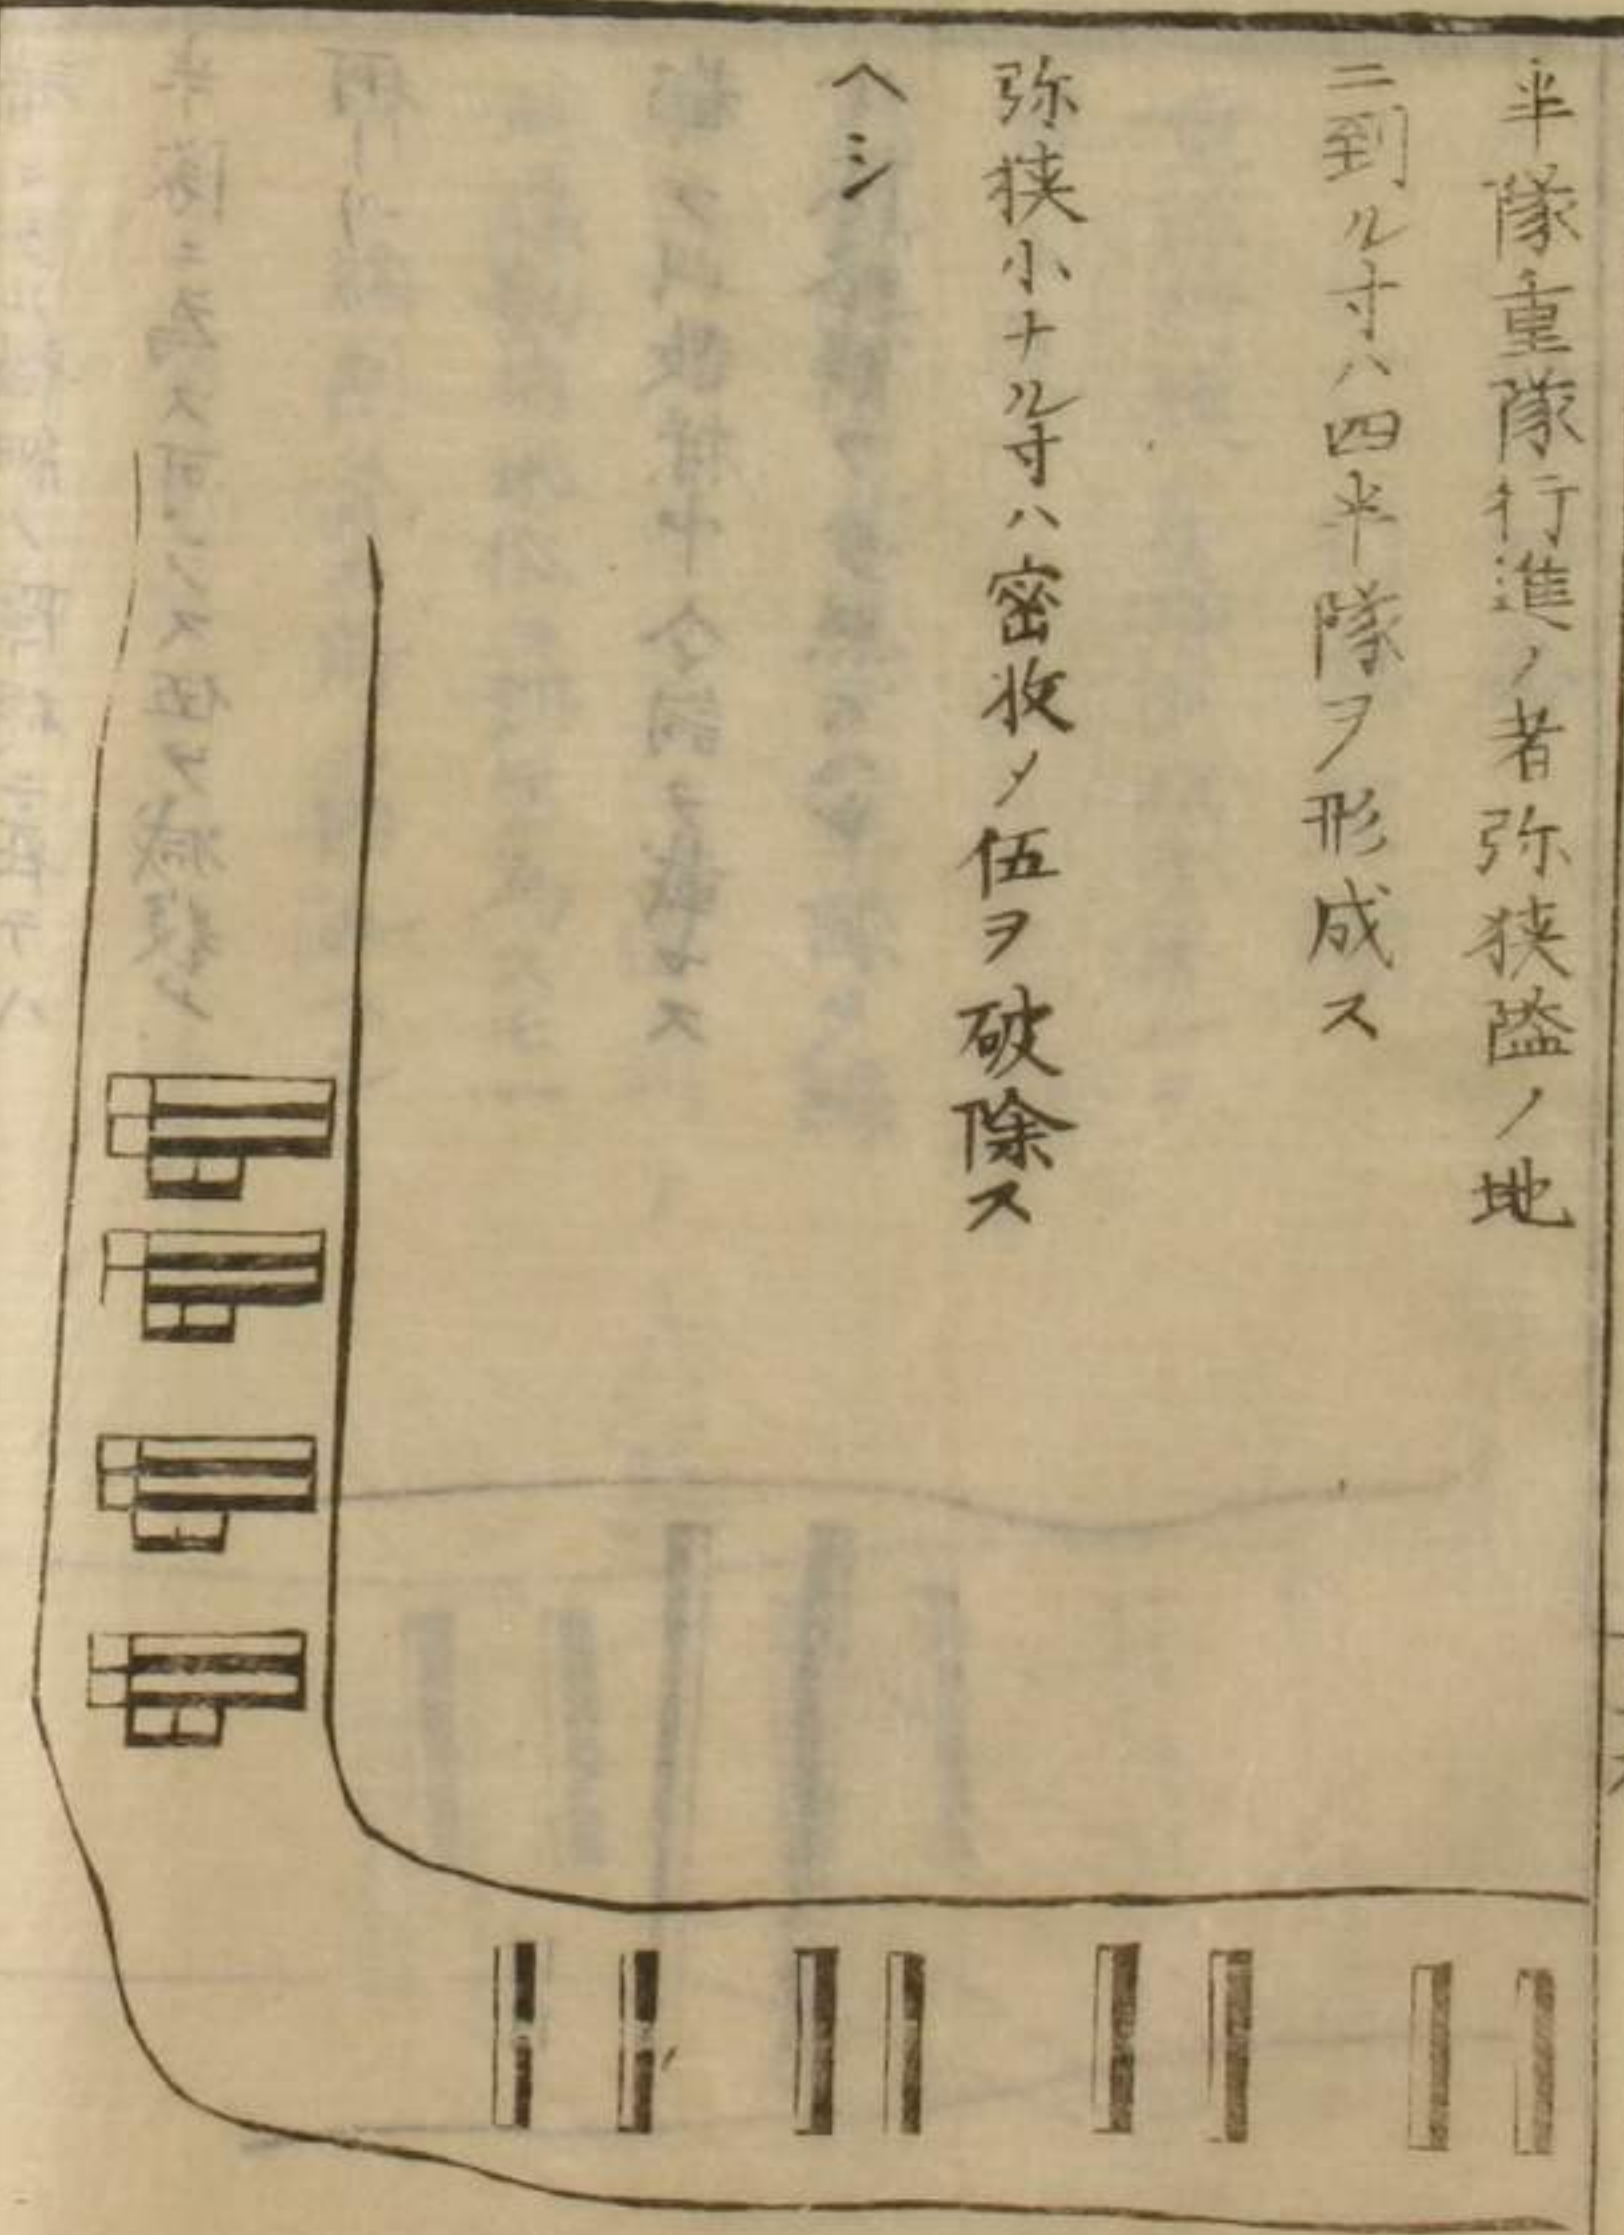 半隊重隊行進ノ者弥狭隘ノ地
ニ到ル寸ハ四半隊ヲ形成ス
弥狭小ナル寸ハ密收ノ伍ヲ破除ス
ヘシ